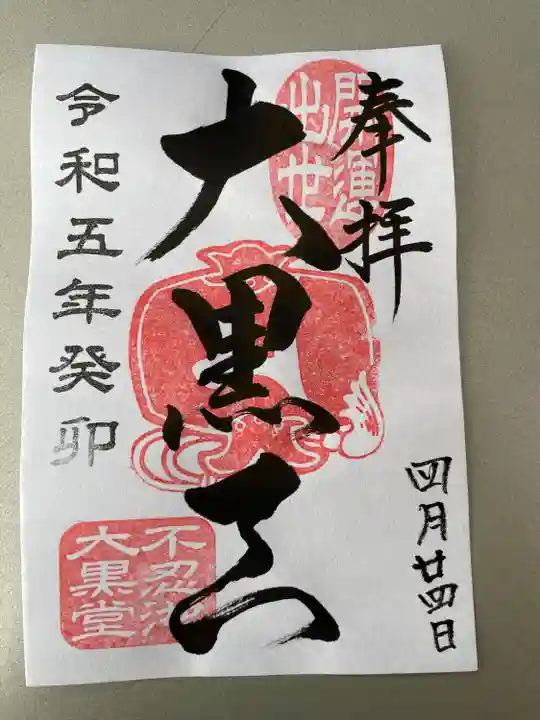 奉拝
開運
出世
四月廿四日
大黒天
令和五年癸卯
不忍池
大黒堂